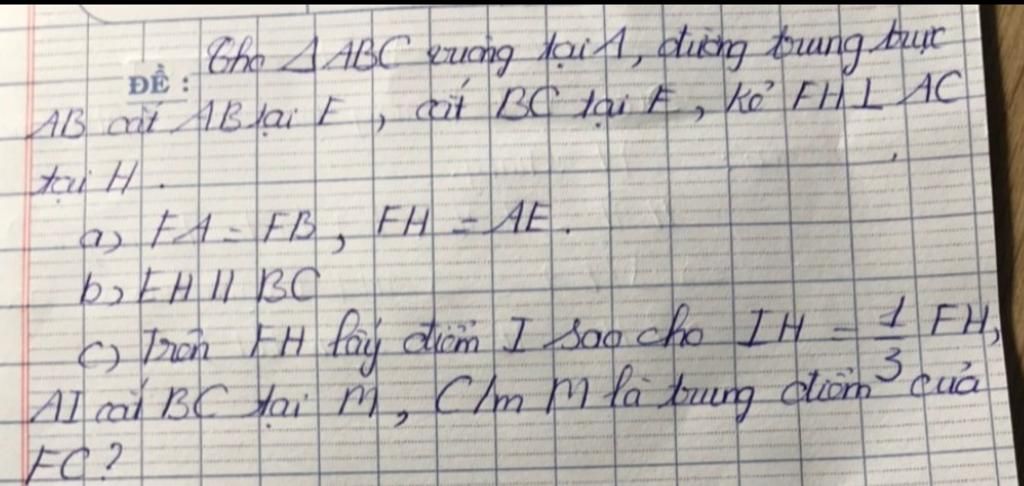 Cho △ABC vuông tại A, đường trung trực
ĐỀ :
AB cắt AB tại E, cắt BC tại F, kẻ FH⊥AC
tại H.
a) FA = FB, FH = AE.
b) EH // BC
c) Trên FH lấy điểm I sao cho IH = 1/3 FH,
AI cắt BC tại M, C/m M là trung điểm của
FC?